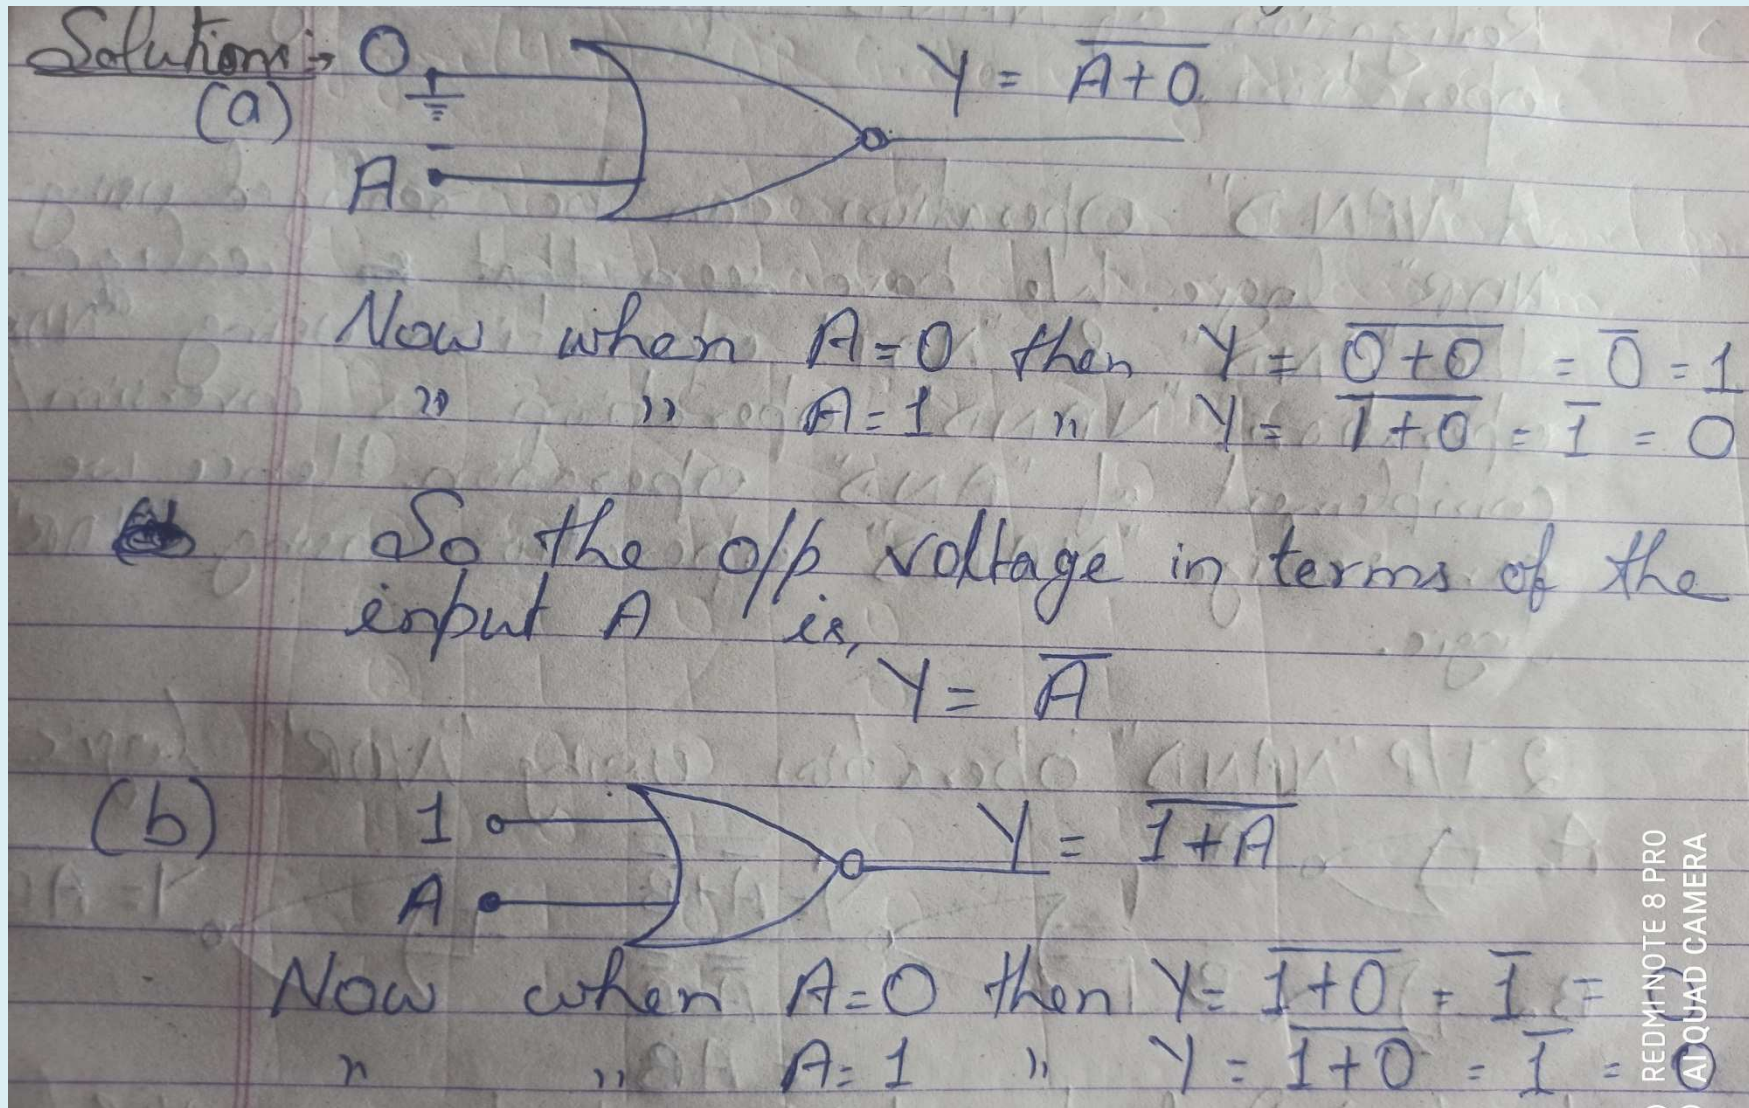 Solution:→ O Y = \overline{A+0}
(a)
A
Now when A=0 then Y = \overline{0+0} = \overline{0} = 1
" " A=1 " Y = \overline{1+0} = \overline{1} = 0
So the o/p voltage in terms of the
input A is,
Y = \overline{A}
(b) 1 Y = \overline{1+A}
A
Now when A=0 then Y = \overline{1+0} = \overline{1} =
" " A=1 " Y = \overline{1+0} = \overline{1} = 0
REDMI NOTE 8 PRO
AI QUAD CAMERA